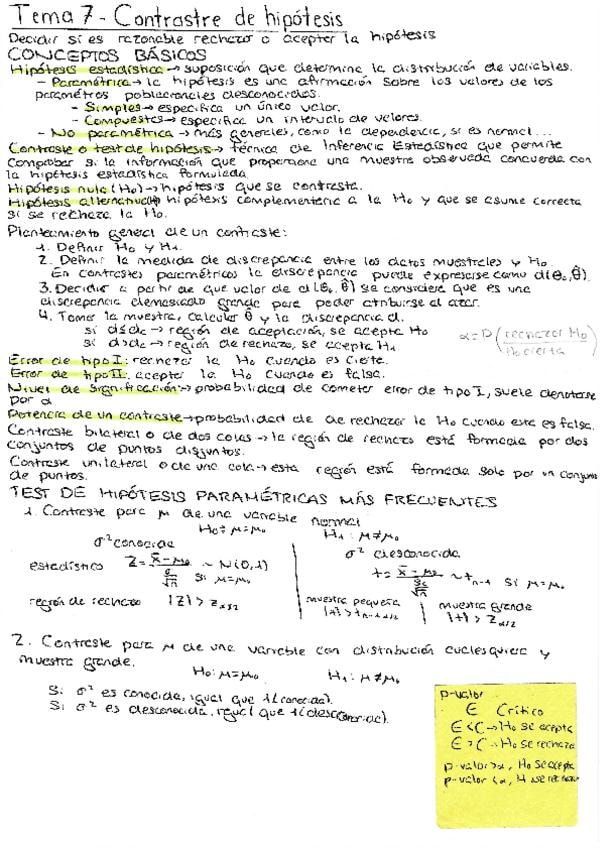 Tema 7 - Contrastre de hipótesis
Decidir si es razonable rechazar o aceptar la hipótesis
CONCEPTOS BÁSICOS
Hipótesis estadística → suposición que determina la distribución de variables.
- Paramétrica → la hipótesis es una afirmación sobre los valores de los
parámetros poblacionales desconocidos.
- Simples → especifica un único valor.
- Compuestas → especifica un intervalo de valores.
- No paramétrica → más generales, como la dependencia, si es normal...
Contraste o test de hipótesis → técnica de Inferencia Estadística que permite
comprobar si la información que proporciona una muestra observada concuerda con
la hipótesis estadística formulada
Hipótesis nula (H₀) → hipótesis que se contrasta.
Hipótesis alternativa → hipótesis complementaria a la H₀ y que se asume correcta
si se rechaza la H₀.
Planteamiento general de un contraste:
1. Definir H₀ y H₁.
2. Definir la medida de discrepancia entre los datos muestrales y H₀
En contrastes paramétricos la discrepancia puede expresarse como d(θ₀, θ̂).
3. Decidir a partir de que valor de d(θ₀, θ̂) se considera que es una
discrepancia demasiado grande para poder atribuirse al azar.
4. Tomar la muestra, calcular θ̂ y la discrepancia d.
si d≤dc → región de aceptación, se acepta H₀
si d>dc → región de rechazo, se acepta H₁
α = P (rechazar H₀ / H₀ cierta)
Error de tipo I: rechazar la H₀ cuando es cierta.
Error de tipo II: aceptar la H₀ cuando es falsa.
Nivel de significación → probabilidad de cometer error de tipo I, suele denotarse
por α
Potencia de un contraste → probabilidad de de rechazar la H₀ cuando esta es falsa.
Contraste bilateral o de dos colas → la región de rechazo está formada por dos
conjuntos de puntos disjuntos.
Contraste unilateral o de una cola → esta región está formada solo por un conjunto
de puntos.
TEST DE HIPÓTESIS PARAMÉTRICAS MÁS FRECUENTES
1. Contraste para μ de una variable normal
H₀: μ=μ₀ H₁: μ≠μ₀
σ² conocida σ² desconocida
estadístico Z = (x̄-μ₀)/(σ/√n) ~ N(0,1) si μ=μ₀ t = (x̄-μ₀)/(Sc/√n) ~ tₙ₋₁ si μ=μ₀
región de rechazo |Z| > Zα/2 muestra pequeña |t| > tₙ₋₁ α/2 muestra grande |t| > Zα/2
2. Contraste para μ de una variable con distribución cualesquiera y
muestra grande.
H₀: μ=μ₀ H₁: μ≠μ₀
Si σ² es conocida, igual que 1 (conocida).
Si σ² es desconocida, igual que 1 (desconocida).
p-valor
E Crítico
E < C → H₀ se acepta
E > C → H₀ se rechaza
p-valor > α, H₀ se acepta
p-valor < α, H se rechaza